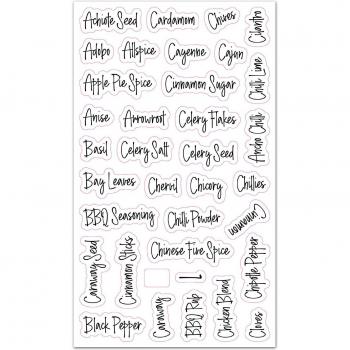 Achiote Seed
Cardamom
Chives
Cilantro
Adobo
Allspice
Cayenne
Cajun
Chili Lime
Apple Pie Spice
Cinnamon Sugar
Anise
Arrowroot
Celery Flakes
Ancho Chili
Basil
Celery Salt
Celery Seed
Bay Leaves
Chervil
Chicory
Chillies
BBQ Seasoning
Chilli Powder
Cinnamon
Caraway Seed
Cinnamon Sticks
Chinese Five Spice
Chipotle Pepper
Caraway
BBQ Rub
Chicken Bland
Cloves
Black Pepper